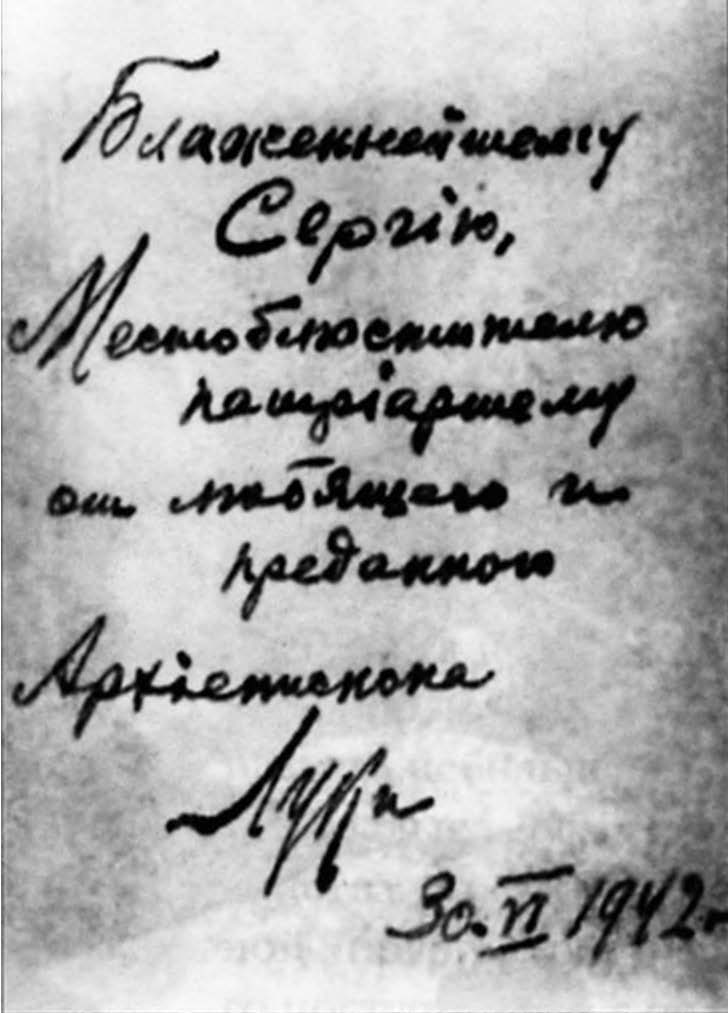 Блаженнейшему
Сергію,
Местоблюстителю
патріаршему
от любящего и
преданного
Архіепископа
Луки
30.VI 1942 г.